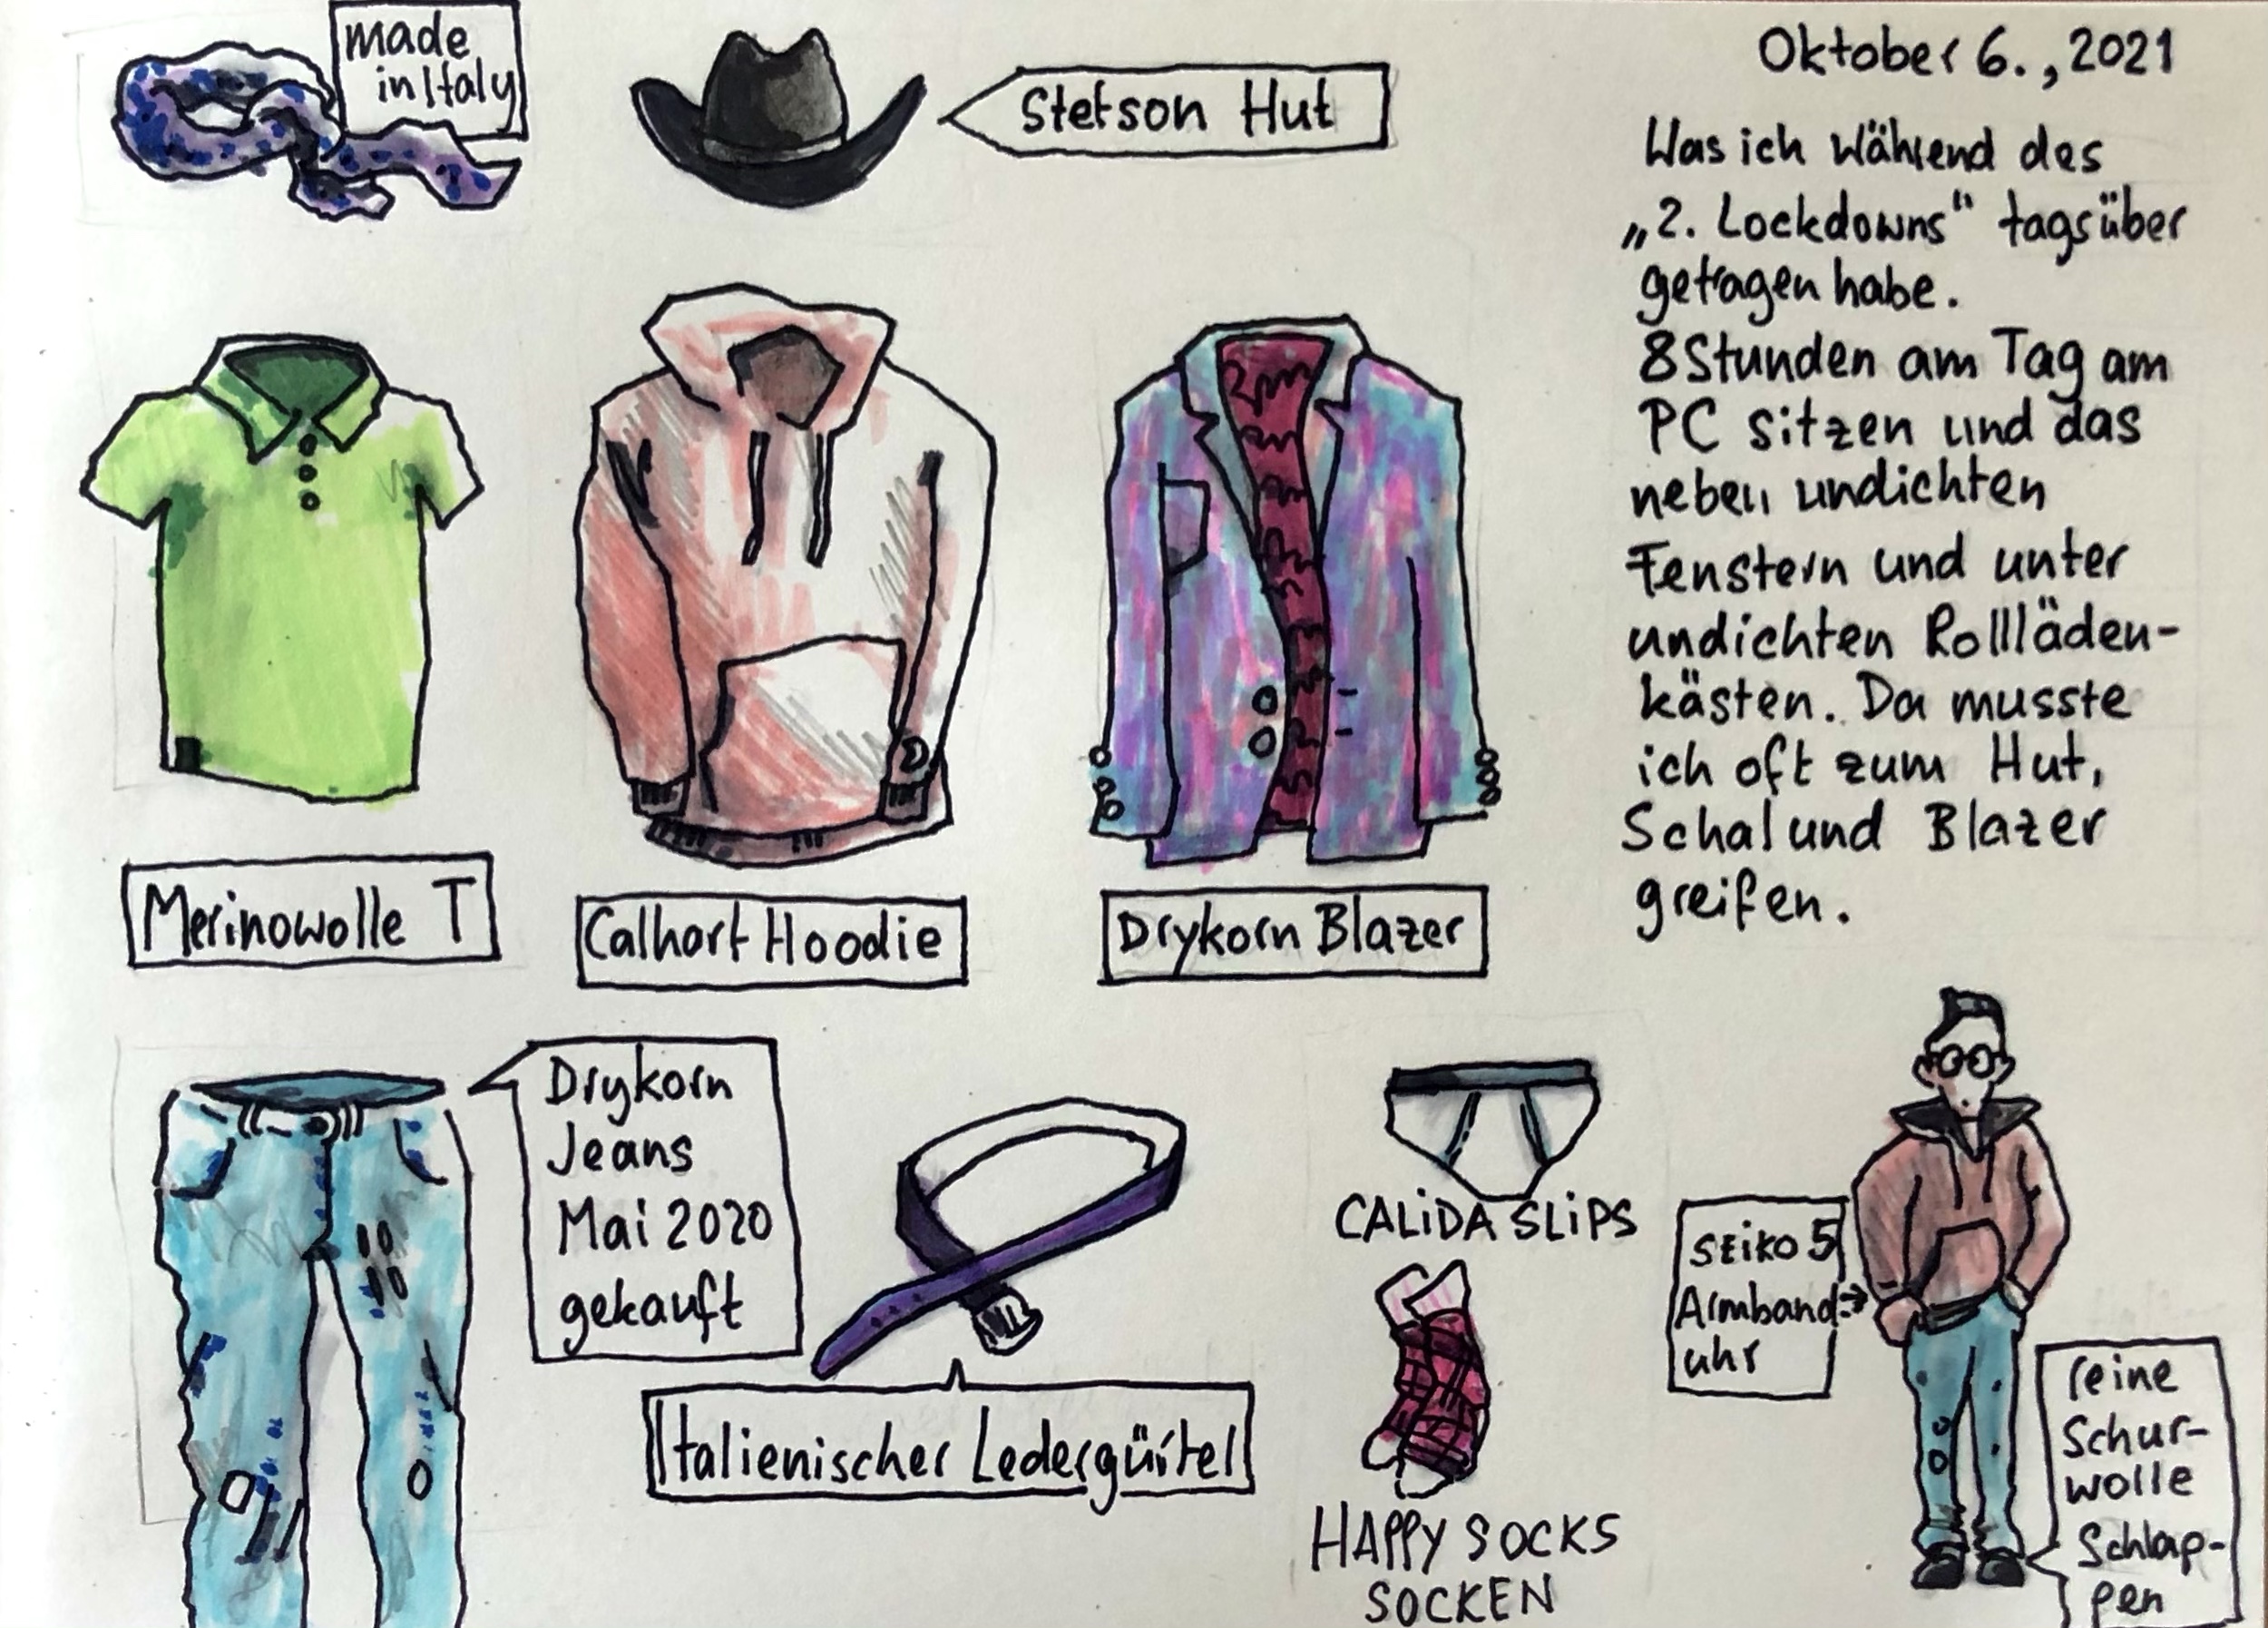 made
in Italy
Stetson Hut
Oktober 6., 2021
Was ich während des
„2. Lockdowns“ tagsüber
getragen habe.
8 Stunden am Tag am
PC sitzen und das
neben undichten
Fenstern und unter
undichten Rollläden-
kästen. Da musste
ich oft zum Hut,
Schal und Blazer
greifen.
Merinowolle T
Calhart Hoodie
Drykorn Blazer
Drykorn
Jeans
Mai 2020
gekauft
Italienischer Ledergürtel
CALiDA SLiPS
HAPPY SOCKS
SOCKEN
SEiKO 5
Armband
uhr
reine
Schur-
wolle
Schlap-
pen